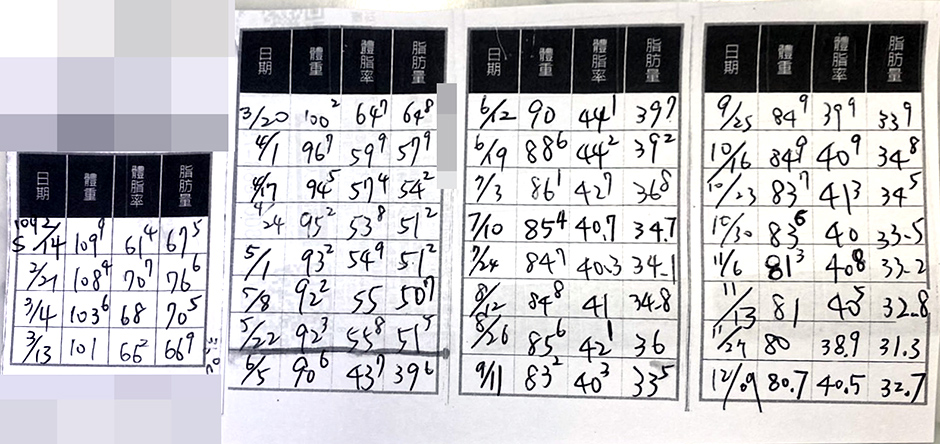 日期 體重 體脂率 脂肪量
2/14 109⁹ 61⁴ 67⁵
2/21 108⁴ 70⁷ 76⁶
3/4 103⁶ 68 70⁵
3/13 101 66² 66⁹
日期 體重 體脂率 脂肪量
3/20 100² 64⁷ 64⁸
4/1 96⁷ 59⁹ 57⁹
4/17 94⁵ 57⁴ 54²
4/24 95² 53⁸ 51²
5/1 93² 54⁹ 51²
5/8 92² 55 50⁷
5/22 92³ 55⁸ 51⁵
6/5 90⁶ 43⁷ 39⁶
日期 體重 體脂率 脂肪量
6/12 90 44¹ 39⁷
6/19 88⁶ 44² 39²
7/3 86¹ 42⁷ 36⁸
7/10 85⁴ 40.7 34.7
7/24 84⁷ 40.3 34.1
8/12 84⁸ 41 34.8
8/26 85⁶ 42¹ 36
9/11 83² 40³ 33⁵
日期 體重 體脂率 脂肪量
9/25 84⁹ 39⁹ 33⁹
10/16 84⁹ 40⁹ 34⁸
10/23 83⁷ 41³ 34⁵
10/30 83⁶ 40 33.5
11/6 81³ 40⁸ 33.2
11/13 81 40⁵ 32.8
11/27 80 38.9 31.3
12/09 80.7 40.5 32.7